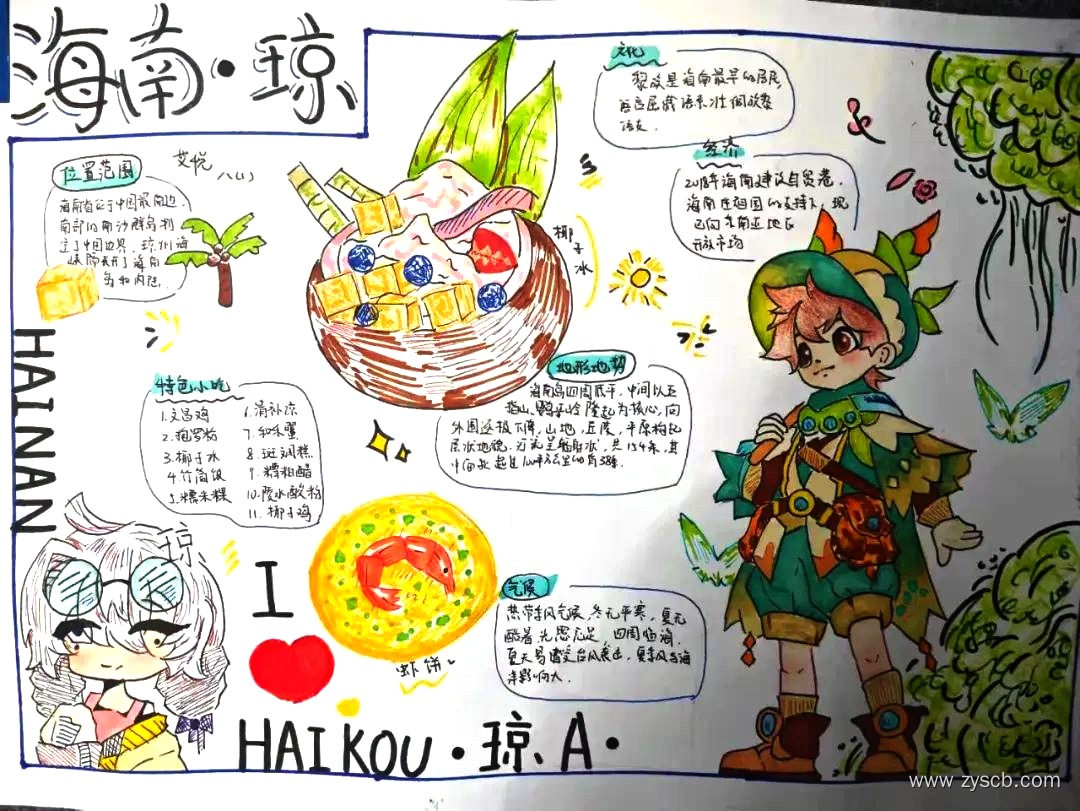 海南·琼
位置范围
艾悦
八(4)
海南省位于中国最南边,
南部的南沙群岛
了中国边界,琼州海
峡隔开了海南
岛和内陆.
HAINAN
椰子水
特色小吃
1.文昌鸡
2.抱罗粉
3.椰子水
4.竹筒饭
5.糯米糕
6.清补凉
7.和乐蟹
8.斑斓糕
9.糟粕醋
10.陵水酸粉
11.椰子鸡
文化
黎族是海南最早的居民,
语言属
语支.
经济
2018年海南建设自贸港,
海南在祖国的支持下,现
已向东南亚地区
开放市场
地形地势
海南岛四周低平,中间以五
指山、鹦哥岭隆起为核心,向
外围逐级下降,山地,丘陵,平原构成
层状地貌,河流呈辐射状,共154条,其
中
气候
热带季风气候,冬无严寒,夏无
酷暑,光照充足,四周临海,
夏天易遭受台风袭击,夏季风与海
洋影响大.
琼
I
虾饼
HAIKOU·琼A·
www.zyscb.com